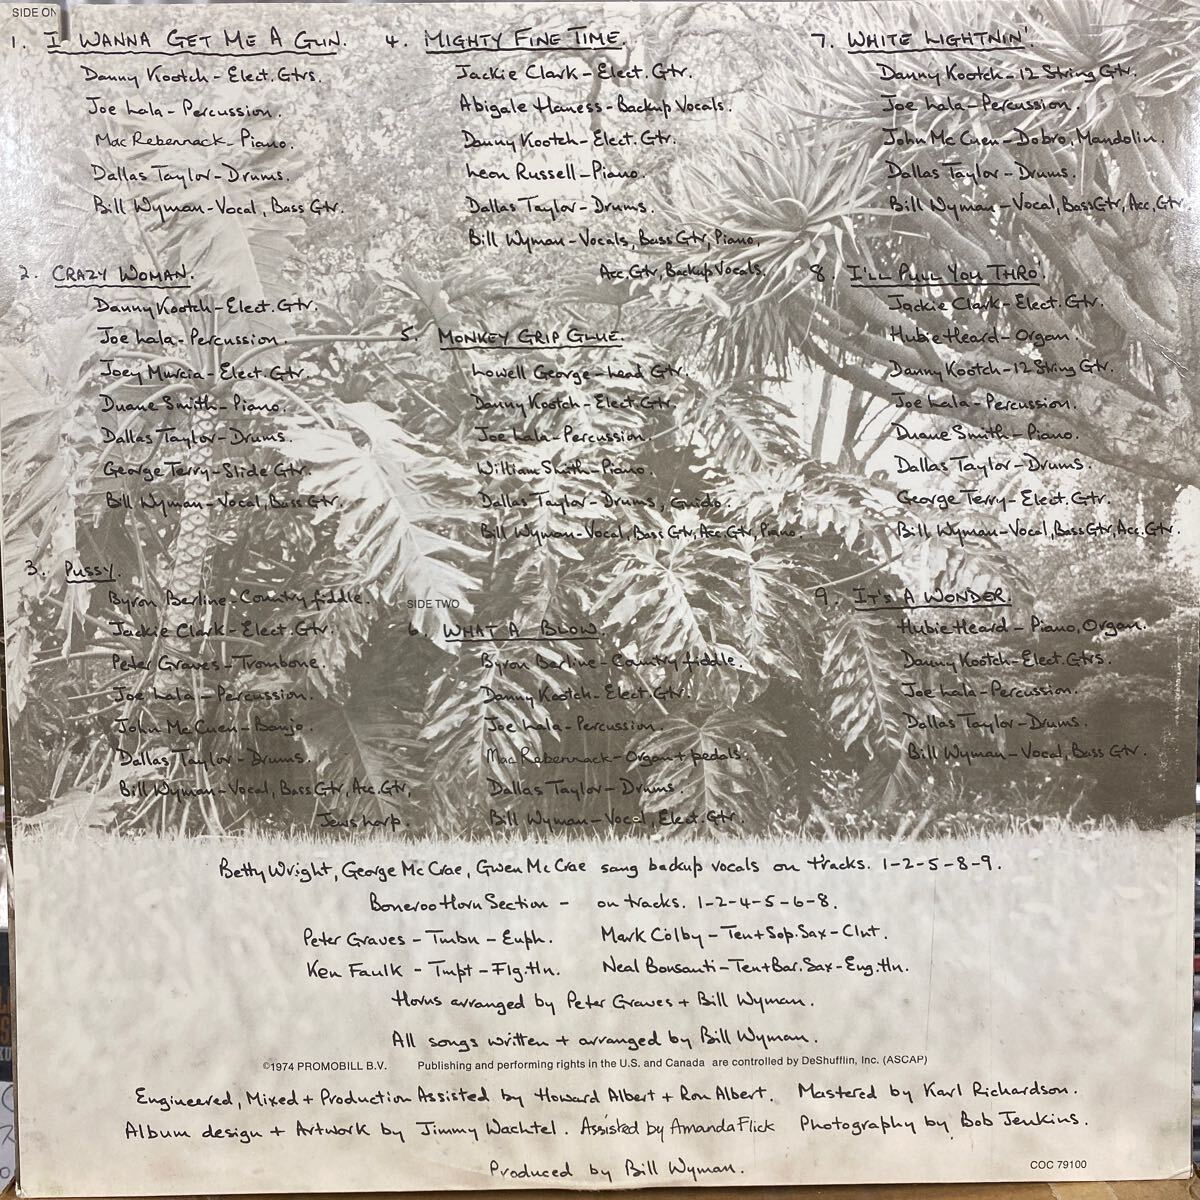 SIDE ON
1. I WANNA GET ME A GUN.
Danny Kootch - Elect. Gtrs.
Joe Lala - Percussion.
Mac Rebennack - Piano.
Dallas Taylor - Drums.
Bill Wyman - Vocal, Bass Gtr.
2. CRAZY WOMAN.
Danny Kootch - Elect. Gtr.
Joe Lala - Percussion.
Joey Murcia - Elect. Gtr.
Duane Smith - Piano.
Dallas Taylor - Drums.
George Terry - Slide Gtr.
Bill Wyman - Vocal, Bass Gtr.
3. PUSSY.
Byron Berline - Country fiddle.
Jackie Clark - Elect. Gtr.
Peter Graves - Trombone.
Joe Lala - Percussion.
John McCuen - Banjo.
Dallas Taylor - Drums.
Bill Wyman - Vocal, Bass Gtr, Acc. Gtr,
Jews harp.
4. MIGHTY FINE TIME.
Jackie Clark - Elect. Gtr.
Abigale Haness - Backup Vocals.
Danny Kootch - Elect. Gtr.
Leon Russell - Piano.
Dallas Taylor - Drums.
Bill Wyman - Vocals, Bass Gtr, Piano,
Acc. Gtr, Backup Vocals.
5. MONKEY GRIP GLUE.
Lowell George - Lead Gtr.
Danny Kootch - Elect. Gtr.
Joe Lala - Percussion.
William Smith - Piano.
Dallas Taylor - Drums, Guido.
Bill Wyman - Vocal, Bass Gtr, Acc. Gtr, Piano.
SIDE TWO
6. WHAT A BLOW.
Byron Berline - Country fiddle.
Danny Kootch - Elect. Gtr.
Joe Lala - Percussion.
Mac Rebennack - Organ + pedals.
Dallas Taylor - Drums.
Bill Wyman - Vocal, Elect. Gtr.
7. WHITE LIGHTNIN'.
Danny Kootch - 12 String Gtr.
Joe Lala - Percussion.
John McCuen - Dobro, Mandolin.
Dallas Taylor - Drums.
Bill Wyman - Vocal, Bass Gtr, Acc. Gtr.
8. I'LL PULL YOU THRO'.
Jackie Clark - Elect. Gtr.
Hubie Heard - Organ.
Danny Kootch - 12 String Gtr.
Joe Lala - Percussion.
Duane Smith - Piano.
Dallas Taylor - Drums.
George Terry - Elect. Gtr.
Bill Wyman - Vocal, Bass Gtr, Acc. Gtr.
9. IT'S A WONDER.
Hubie Heard - Piano, Organ.
Danny Kootch - Elect. Gtrs.
Joe Lala - Percussion.
Dallas Taylor - Drums.
Bill Wyman - Vocal, Bass Gtr.
Betty Wright, George McCrae, Gwen McCrae sang backup vocals on tracks. 1-2-5-8-9.
Bonaroo Horn Section - on tracks. 1-2-4-5-6-8.
Peter Graves - Tmbn - Euph. Mark Colby - Ten + Sop. Sax - Clnt.
Ken Faulk - Tmpt - Flg. Hn. Neal Bonsanti - Ten + Bar. Sax - Eng. Hn.
Horns arranged by Peter Graves + Bill Wyman.
All songs written + arranged by Bill Wyman.
©1974 PROMOBILL B.V. Publishing and performing rights in the U.S. and Canada are controlled by DeShufflin, Inc. (ASCAP)
Engineered, Mixed + Production Assisted by Howard Albert + Ron Albert. Mastered by Karl Richardson.
Album design + Artwork by Jimmy Wachtel. Assisted by Amanda Flick Photography by Bob Jenkins.
Produced by Bill Wyman.
COC 79100